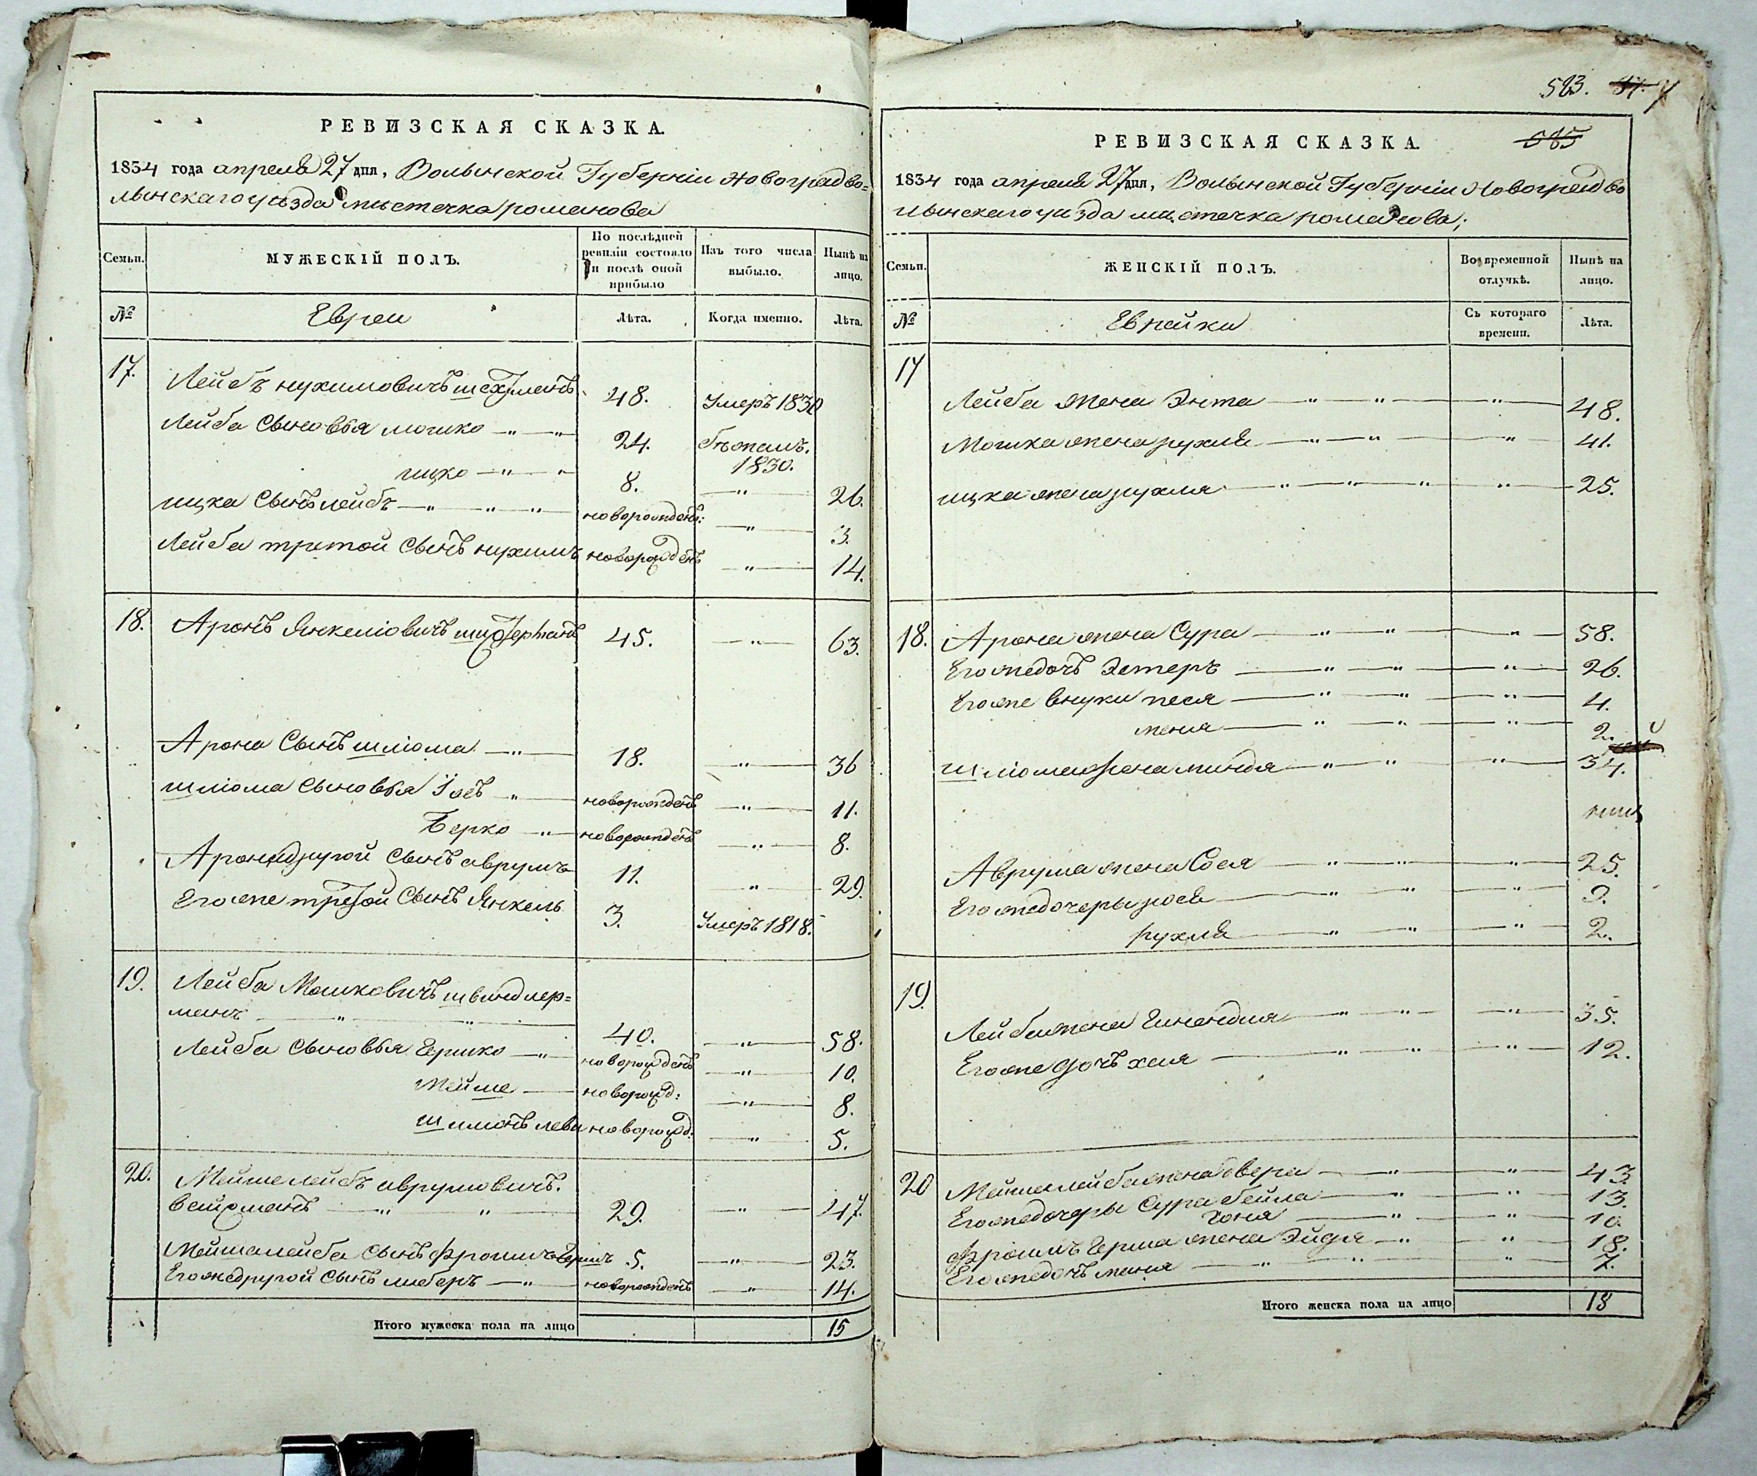 РЕВИЗСКАЯ СКАЗКА.
1834 года апреля 27 дня, Волынской Губерніи Новоградво=
лынскаго уезда местечка романова
Семьи.
МУЖЕСКІЙ ПОЛЪ.
По послѣдней
ревизіи состояло
и послѣ оной
прибыло
Изъ того числа
выбыло.
Нынѣ на
лицо.
№
Евреи
Лѣта.
Когда именно.
Лѣта.
17.
Лейбъ нухимовичъ шехтманъ 48. Умеръ 1830
Лейба Сыновья мошко — " — " 24. бѣжалъ.
1830.
ицко — " — " 8. — " — 26.
ицка Сынъ лейбъ — " " " новорожденъ: — " — 3.
Лейба третой Сынъ нухимъ новорожденъ — " — 14.
18. Аронъ Янкеліовичъ 45. — " — 63.
Арона Сынъ шліома — " — 18. — " — 36
шліома Сыновья Іосъ " — новорожденъ — " — 11.
Берко — " — новорожденъ — " — 8.
Арона другой Сынъ аврумъ 11. — " — 29.
Егоже третой Сынъ Янкель 3. Умеръ 1818.
19. Лейба Мошковичъ швиндлер=
манъ — " — " — 40. — " — 58.
Лейба Сыновья Гершко — " — новорожденъ — " — 10.
Мейше — новорожд: — " — 8.
шимонъ леви новорожд: — " — 5.
20. Мейше лейбъ аврумовичъ.
вейцманъ — " — " 29. — " — 47.
Мейшалейба Сынъ фроимъ Гершъ 5. — " — 23.
Егоже другой Сынъ либеръ — " новорожденъ — " — 14.
Итого мужеска пола на лицо 15
583. 51. 7
585
РЕВИЗСКАЯ СКАЗКА.
1834 года апреля 27 дня, Волынской Губерніи Новоградво
лынскаго уезда местечка романова;
Семьи.
ЖЕНСКІЙ ПОЛЪ.
Во временной
отлучкѣ.
Нынѣ на
лицо.
№
Еврейки
Съ котораго
времени.
Лѣта.
17
Лейба жена Энта — " — " — " — 48.
Мошка жена рухля — " — " — " — 41.
ицка жена рухля — " — " — " — 25.
18. Арона жена Сура — " — " — " — 58.
Егоже дочъ Эстеръ — " — " — " — 26.
Егоже внуки песя — " — " — " — 4.
меня — " — " — " — 2.
шліома жена миндя — " — " — " — 34.
Аврума жена Сося — " — " — " — 25.
Егоже дочеры рося — " — " — " — 3.
рухля — " — " — " — 2.
19.
Лейба жена Гинендля — " — " — " — 35.
Егоже дочъ хая — " — " — " — 12.
20 Мейшалейба жена двера — " — " — 43.
Егоже дочеры Сура бейла — " — " — 13.
Гоня — " — " — 10.
фроимъ Герша жена Эйдля — " — " — 18.
Егоже дочъ меня — " — " — " — 7.
Итого женска пола на лицо 18